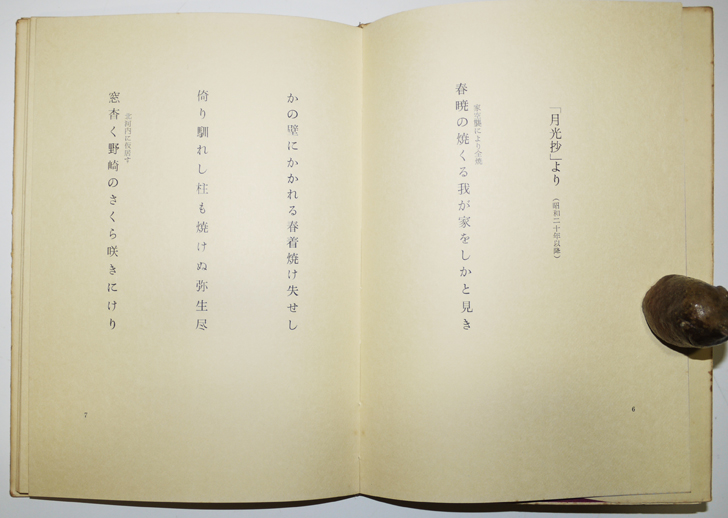 「月光抄」より
(昭和二十年以降)
家空襲により全焼
春暁の焼くる我が家をしかと見き
6
かの壁にかかれる春着焼け失せし
倚り馴れし柱も焼けぬ弥生尽
窓杳く野崎のさくら咲きにけり
7